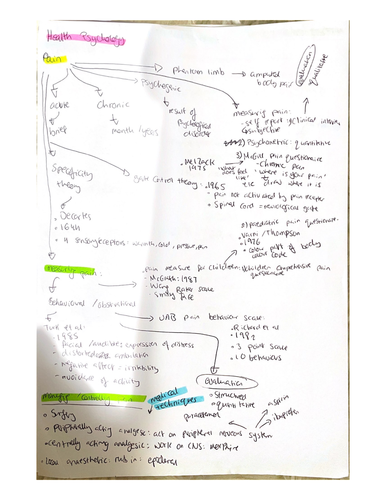 Health Psychology
Pain
Phantom limb → amputed body part
Psychogenic
result of psychological disorder
evaluation
qualitative
acute
brief
chronic
month/years
measuring pain:
- self report/clinical interview
subjective
Psychometric: quantitative
McGill pain questionnaire
- chronic pain
- where is your pain
Specificity theory
gate control theory:
Melzack
1975
1965
- pain not activated by pain receptor
- Spinal cord = neurological gate
Decartes
1644
4 sensory receptors: warmth, cold, pressure, pain
paediatric pain questionnaire
Varni/Thompson
1976
colour part of body
colour code
measuring pain:
- Pain measure for children:
children comprehensive pain questionnaire
McGrath: 1987
Wong Baker scale
smiley face
Behavioural/observational
UAB pain behaviour scale:
Richard et al
1982
3 point scale
10 behaviours
Turk et al
1985
facial/audible expression of distress
distorted ambulation
negative affect: irritability
avoidance of activity
evaluation
structured
quantitative
managing/controlling pain
medical techniques
Surgery
aspirin
paracetamol
ibuprofen
Peripherally acting analgesic: act on peripheral nervous system
centrally acting analgesic: work on CNS: morphine
local anaesthetic: rub in: epidural